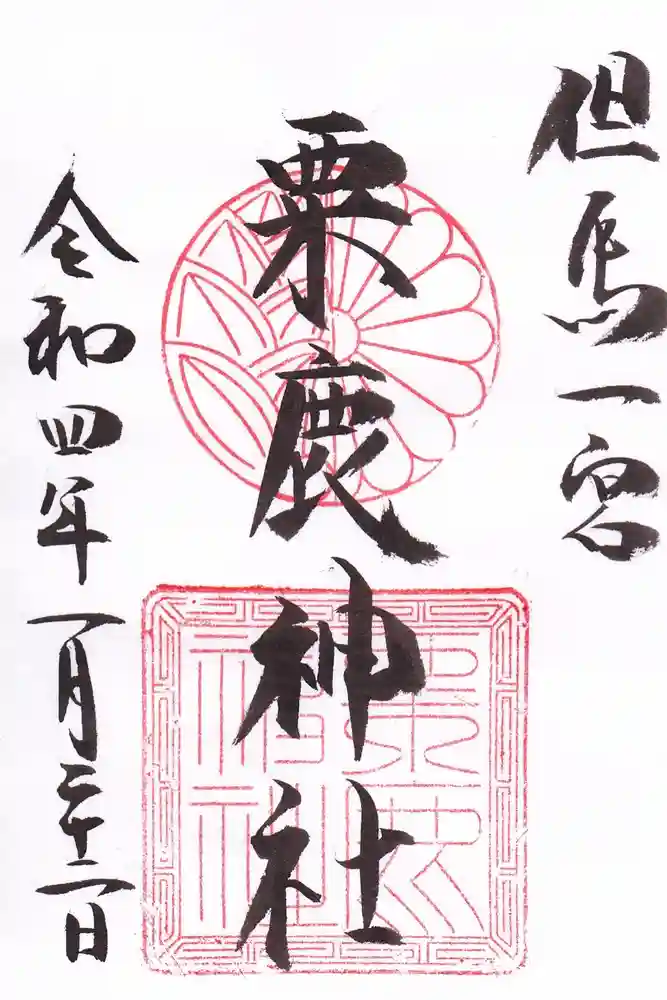 但馬一宮
粟鹿神社
令和四年一月二十二日
粟鹿
神社